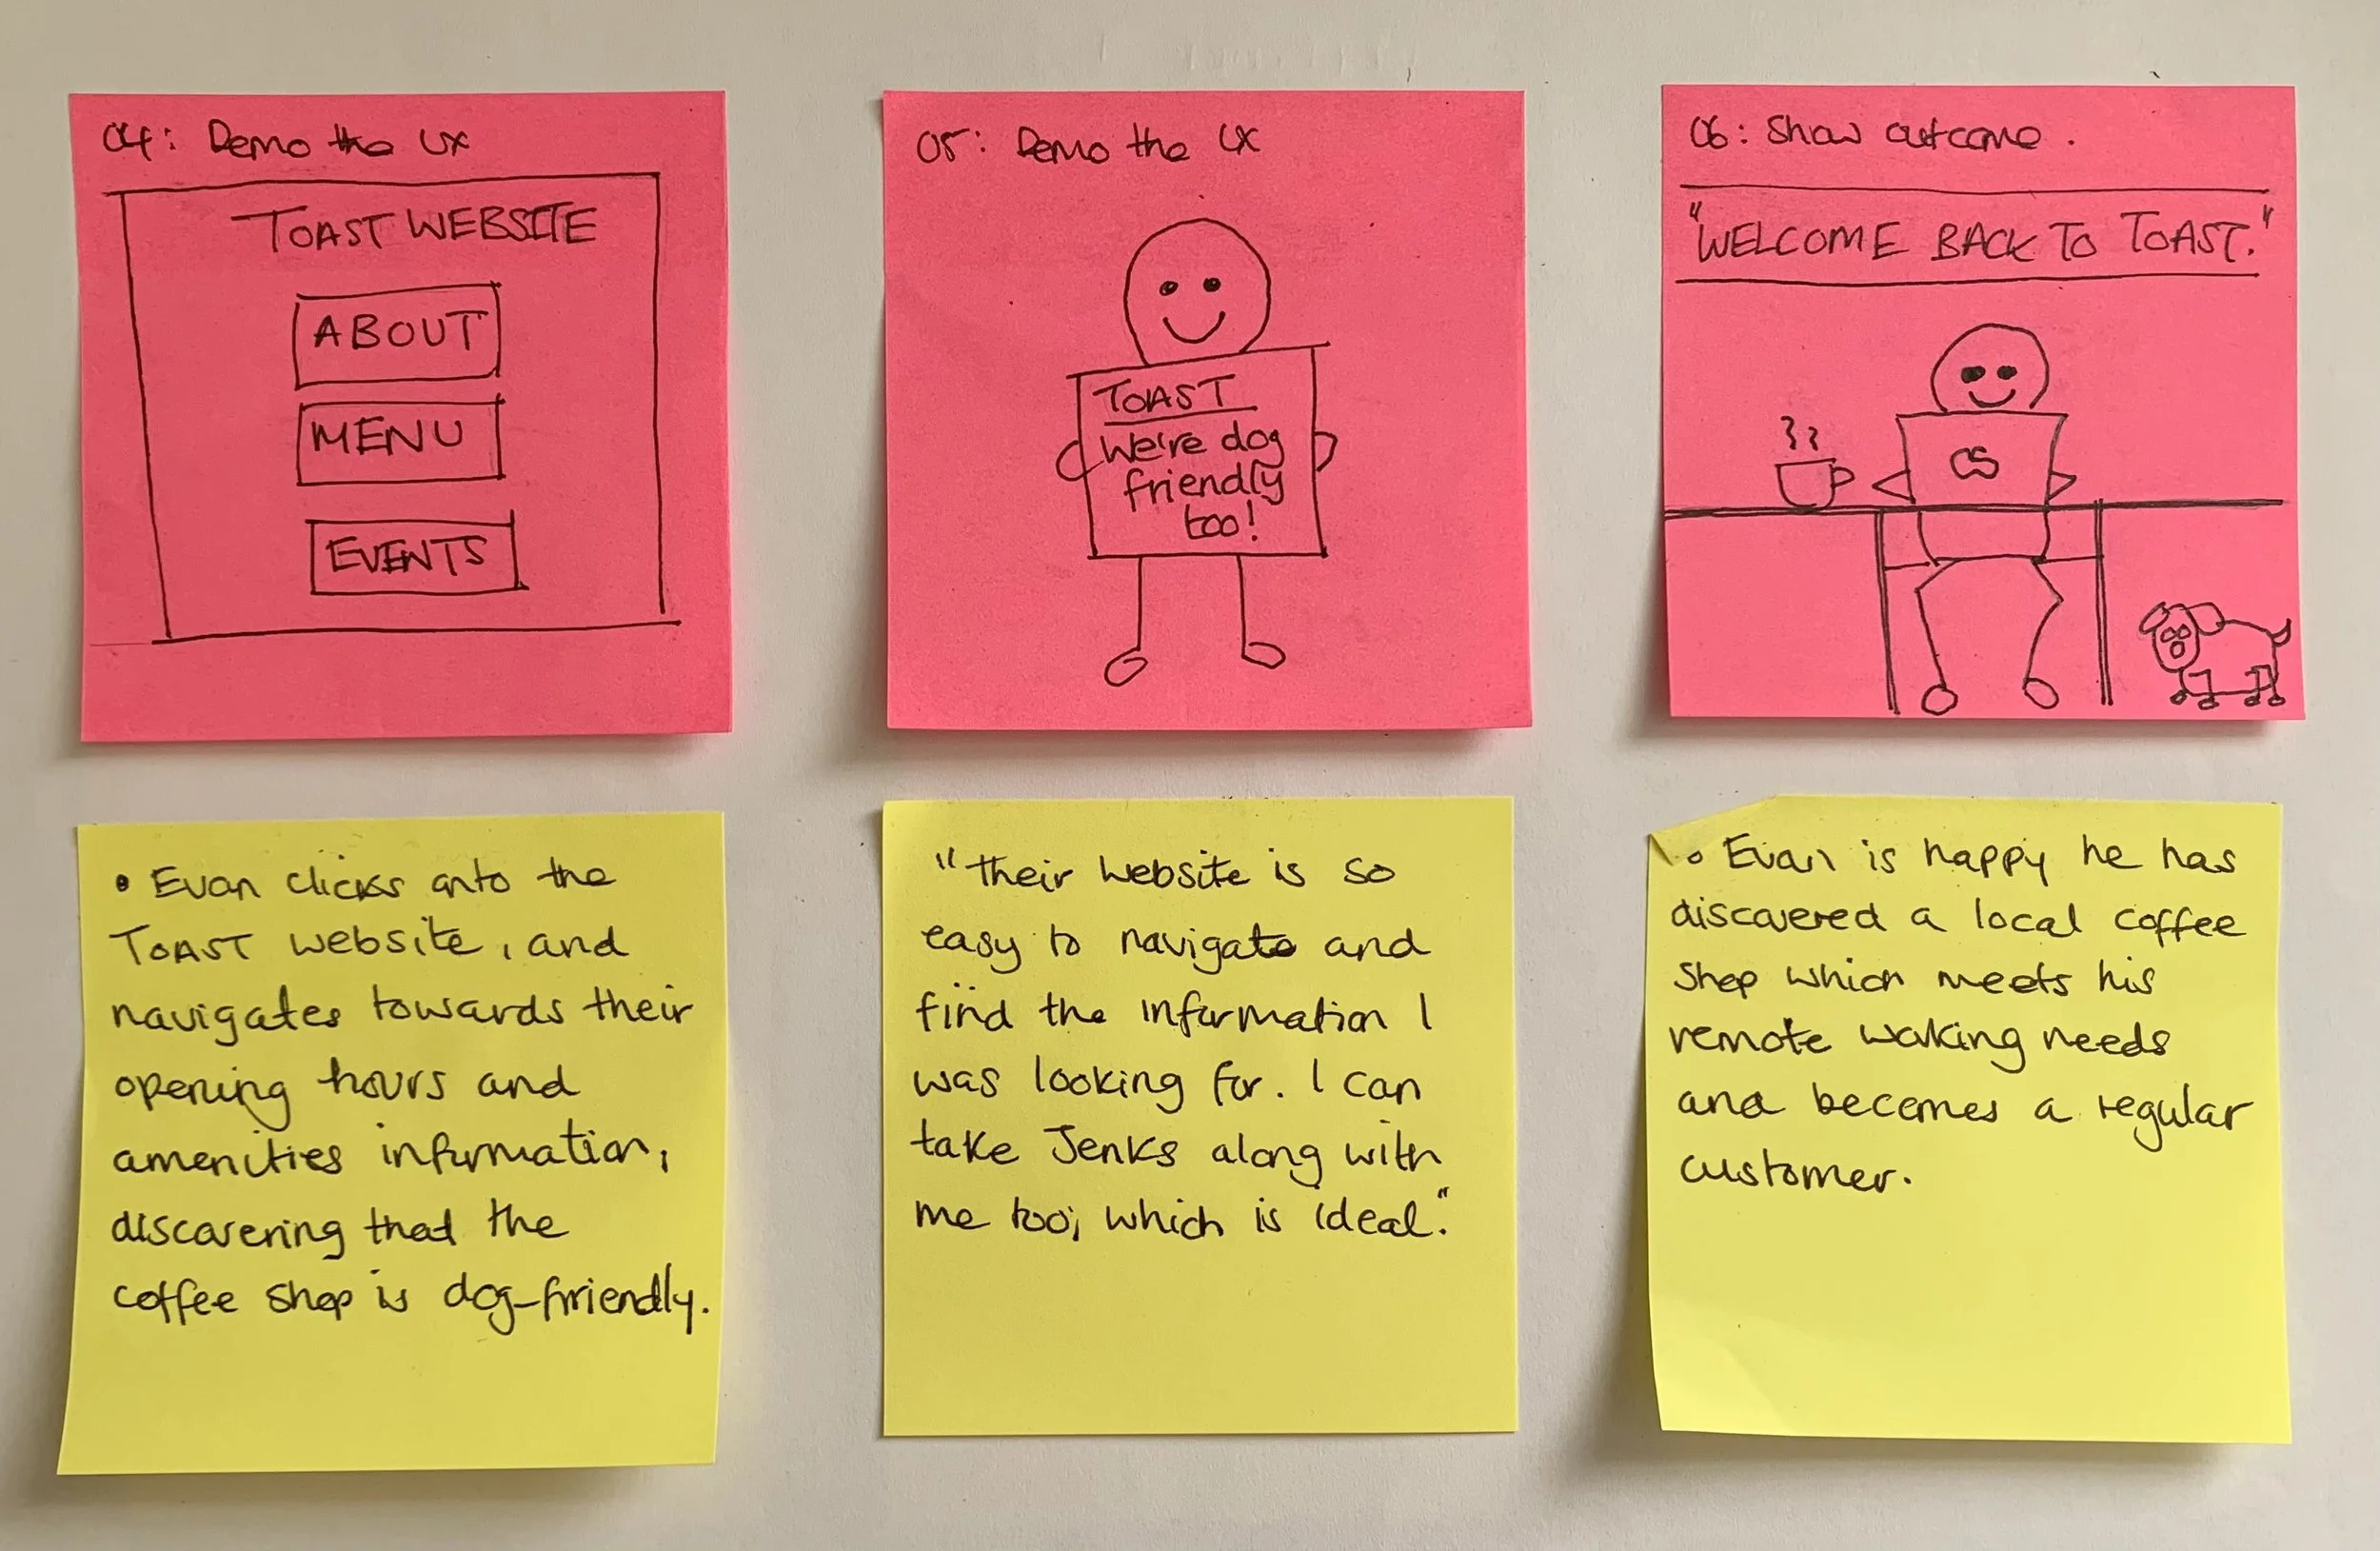 04: Demo the UX
TOAST WEBSITE
ABOUT
MENU
EVENTS
05: Demo the UX
TOAST
We're dog
friendly
too!
06: Show outcome.
"WELCOME BACK TO TOAST."
• Evan clicks onto the
TOAST website, and
navigates towards their
opening hours and
amenities information,
discovering that the
coffee shop is dog-friendly.
"Their website is so
easy to navigate and
find the information I
was looking for. I can
take Jenks along with
me too, which is ideal."
• Evan is happy he has
discovered a local coffee
shop which meets his
remote working needs
and becomes a regular
customer.